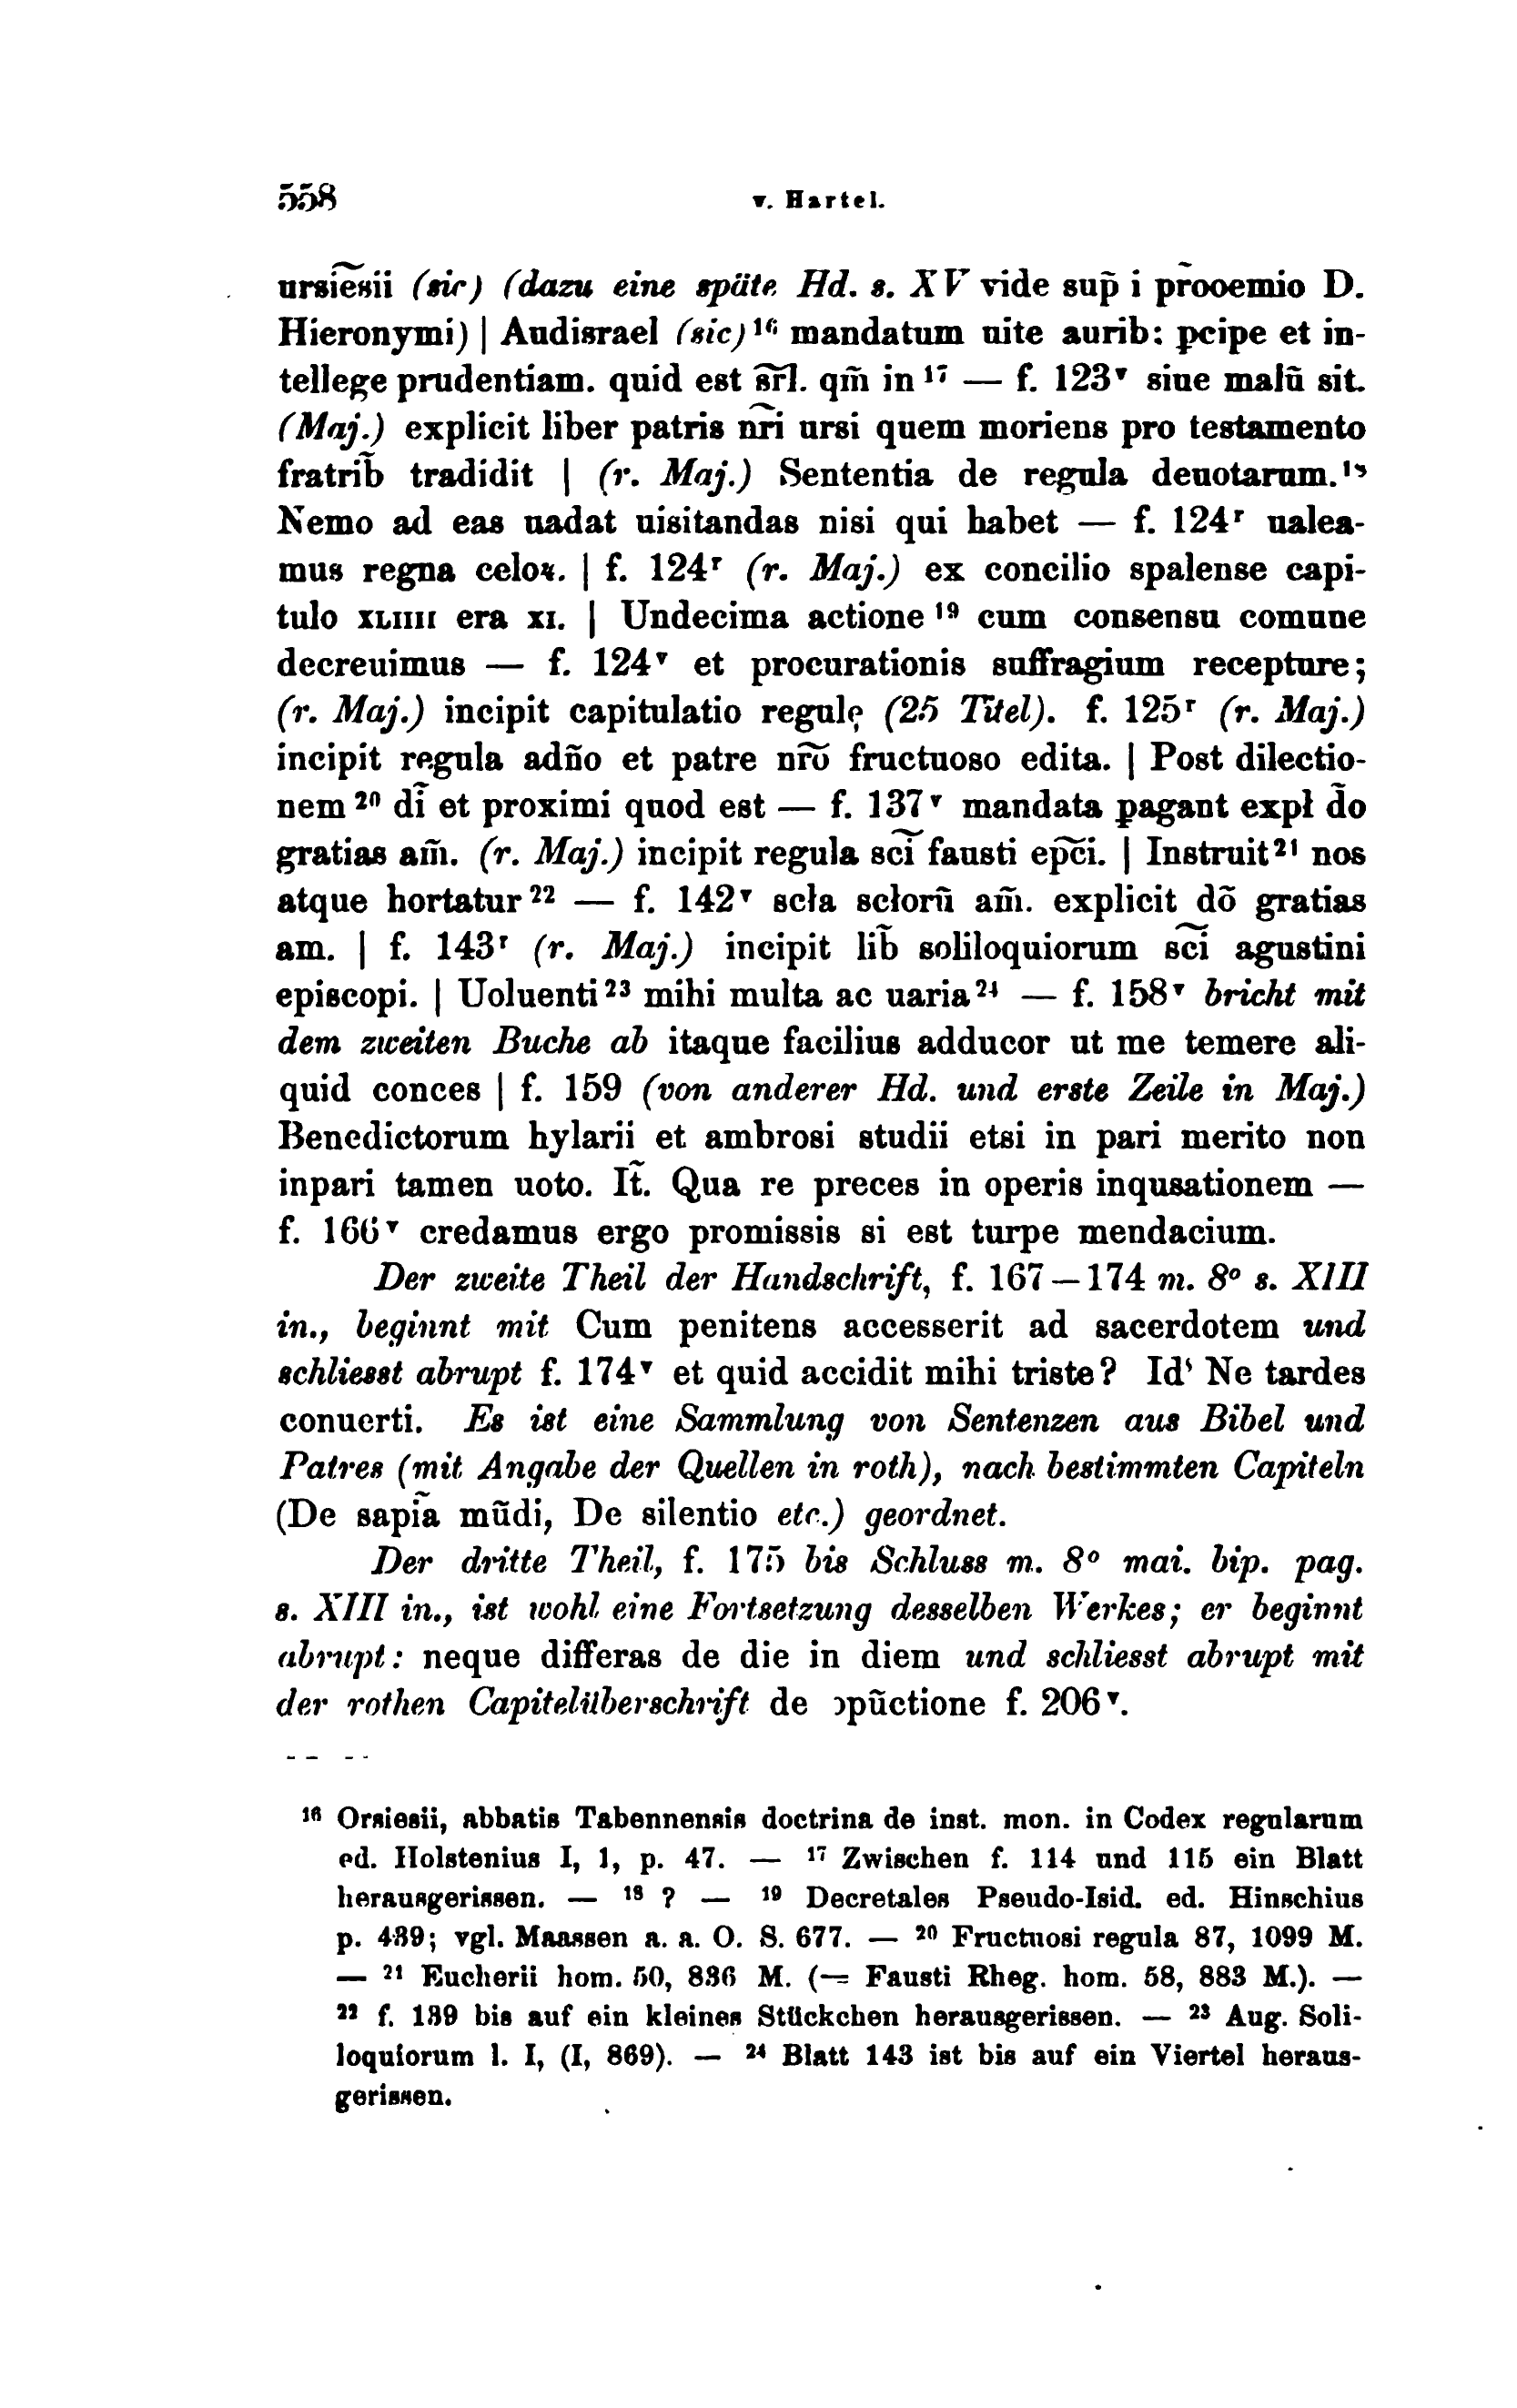 558 v. Hartel.
ursie͠sii (sic) (dazu eine späte Hd. s. XV vide sup̄ i pr̄ooemio D.
Hieronymi) | Audisrael (sic)¹⁶ mandatum uite aurib: ꝑcipe et in-
tellege prudentiam. quid est s͞rl. qm̄ in ¹⁷ — f. 123ᵛ siue malū sit.
(Maj.) explicit liber patris n͞ri ursi quem moriens pro testamento
fratrib̃ tradidit | (r. Maj.) Sententia de regula deuotarum.¹⁸
Nemo ad eas uadat uisitandas nisi qui habet — f. 124ʳ ualea-
mus regna celoꝝ. | f. 124ʳ (r. Maj.) ex concilio spalense capi-
tulo XLIIII era XI. | Undecima actione ¹⁹ cum consensu comune
decreuimus — f. 124ᵛ et procurationis suffragium recepture;
(r. Maj.) incipit capitulatio regulę (25 Titel). f. 125ʳ (r. Maj.)
incipit regula adn̄o et patre nr͞o fructuoso edita. | Post dilectio-
nem ²⁰ dĩ et proximi quod est — f. 137ᵛ mandata ꝑagant expł d̃o
gratias am̄. (r. Maj.) incipit regula sc͠i fausti ep͞ci. | Instruit²¹ nos
atque hortatur²² — f. 142ᵛ scła scłorū am̄. explicit dõ gratias
am. | f. 143ʳ (r. Maj.) incipit lib̃ soliloquiorum sc͠i agustini
episcopi. | Uoluenti²³ mihi multa ac uaria²⁴ — f. 158ᵛ bricht mit
dem zweiten Buche ab itaque facilius adducor ut me temere ali-
quid conces | f. 159 (von anderer Hd. und erste Zeile in Maj.)
Benedictorum hylarii et ambrosi studii etsi in pari merito non
inpari tamen uoto. It̃. Qua re preces in operis inqusationem —
f. 166ᵛ credamus ergo promissis si est turpe mendacium.
Der zweite Theil der Handschrift, f. 167—174 m. 8⁰ s. XIII
in., beginnt mit Cum penitens accesserit ad sacerdotem und
schliesst abrupt f. 174ᵛ et quid accidit mihi triste? Id' Ne tardes
conuerti. Es ist eine Sammlung von Sentenzen aus Bibel und
Patres (mit Angabe der Quellen in roth), nach bestimmten Capiteln
(De sapi͠a mūdi, De silentio etc.) geordnet.
Der dritte Theil, f. 175 bis Schluss m. 8⁰ mai. bip. pag.
s. XIII in., ist wohl eine Fortsetzung desselben Werkes; er beginnt
abrupt: neque differas de die in diem und schliesst abrupt mit
der rothen Capitelüberschrift de ɔpūctione f. 206ᵛ.
¹⁶ Orsiesii, abbatis Tabennensis doctrina de inst. mon. in Codex regularum
ed. Holstenius I, 1, p. 47. — ¹⁷ Zwischen f. 114 und 115 ein Blatt
herausgerissen. — ¹⁸ ? — ¹⁹ Decretales Pseudo-Isid. ed. Hinschius
p. 439; vgl. Maassen a. a. O. S. 677. — ²⁰ Fructuosi regula 87, 1099 M.
— ²¹ Eucherii hom. 50, 836 M. (= Fausti Rheg. hom. 58, 883 M.). —
²² f. 139 bis auf ein kleines Stückchen herausgerissen. — ²³ Aug. Soli-
loquiorum l. I, (I, 869). — ²⁴ Blatt 143 ist bis auf ein Viertel heraus-
gerissen.